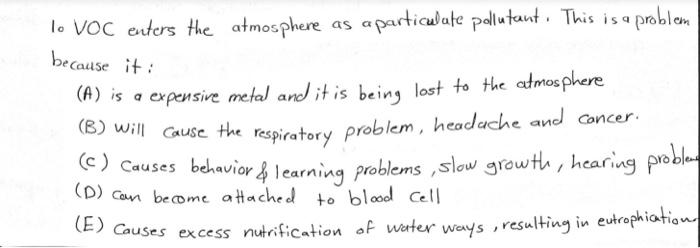 1. VOC enters the atmosphere as a particulate pollutant. This is a problem
because it:
(A) is a expensive metal and it is being lost to the atmosphere
(B) will cause the respiratory problem, headache and cancer.
(C) Causes behavior & learning problems, slow growth, hearing problem
(D) Can become attached to blood cell
(E) Causes excess nutrification of water ways, resulting in eutrophication